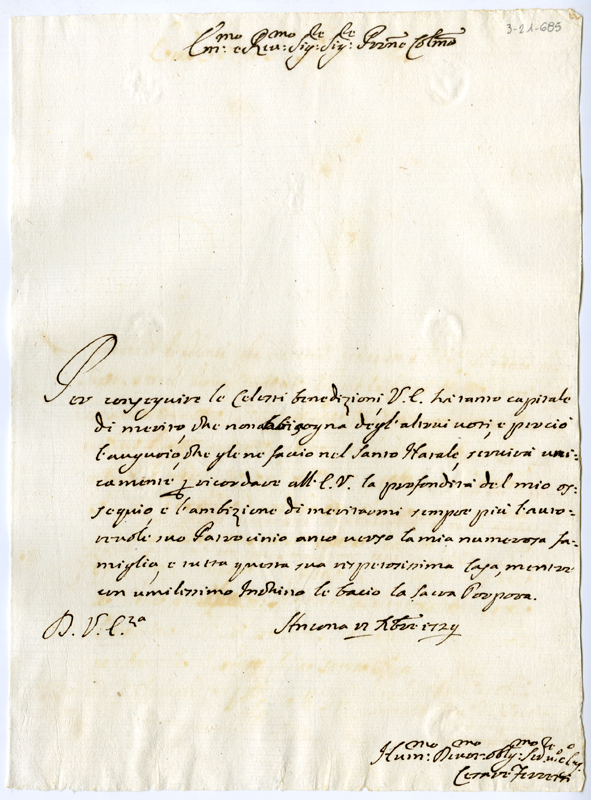 3-21-685
Em:mo e Rev:mo Sig:re Sig:re Prōne Colmo
Per conseguire le Celesti benedizioni V.E. hà tanto capitale
di merito, che non abisogna degl'altrui voti, e perciò
l'augurio, che gle ne faccio nel Santo Natale, servirà uni-
camente p ricordare all'E.V. la profondità del mio os-
sequio, e l'ambizione di meritarmi sempre più l'auto-
revole suo Patrocinio anco verso la mia numerosa fa-
miglia, e tutta questa sua rispettosissima Casa, mentre
con umilissimo Inchino le bacio la Sacra Porpora.
D. V. E.za Ancona Xbre 1729
Hum:mo Devot:mo Oblig:mo
Cesare Ferretti